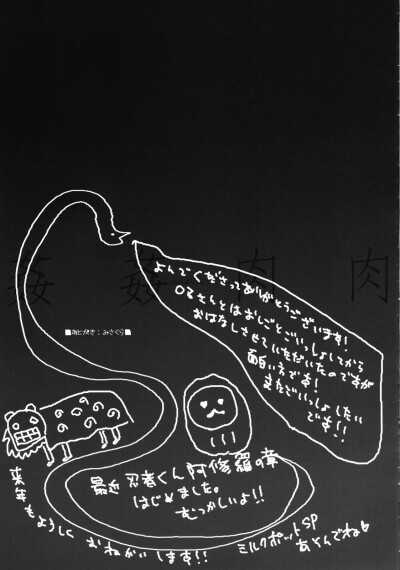 よんでくださってありがとうございます!
〇Zさんとはおしごとごいっしょしてから
おはなしさせていただいたのですが
面白い方です!
またごいっしょしたい
です!!
姦 姦 肉 肉
■あとがき:みさくら■
最近 忍者くん阿修羅の章
はじめました。
むっかしいよ!!
来年もよろしくおねがいします!!
ミルクポットSP
あそんでね